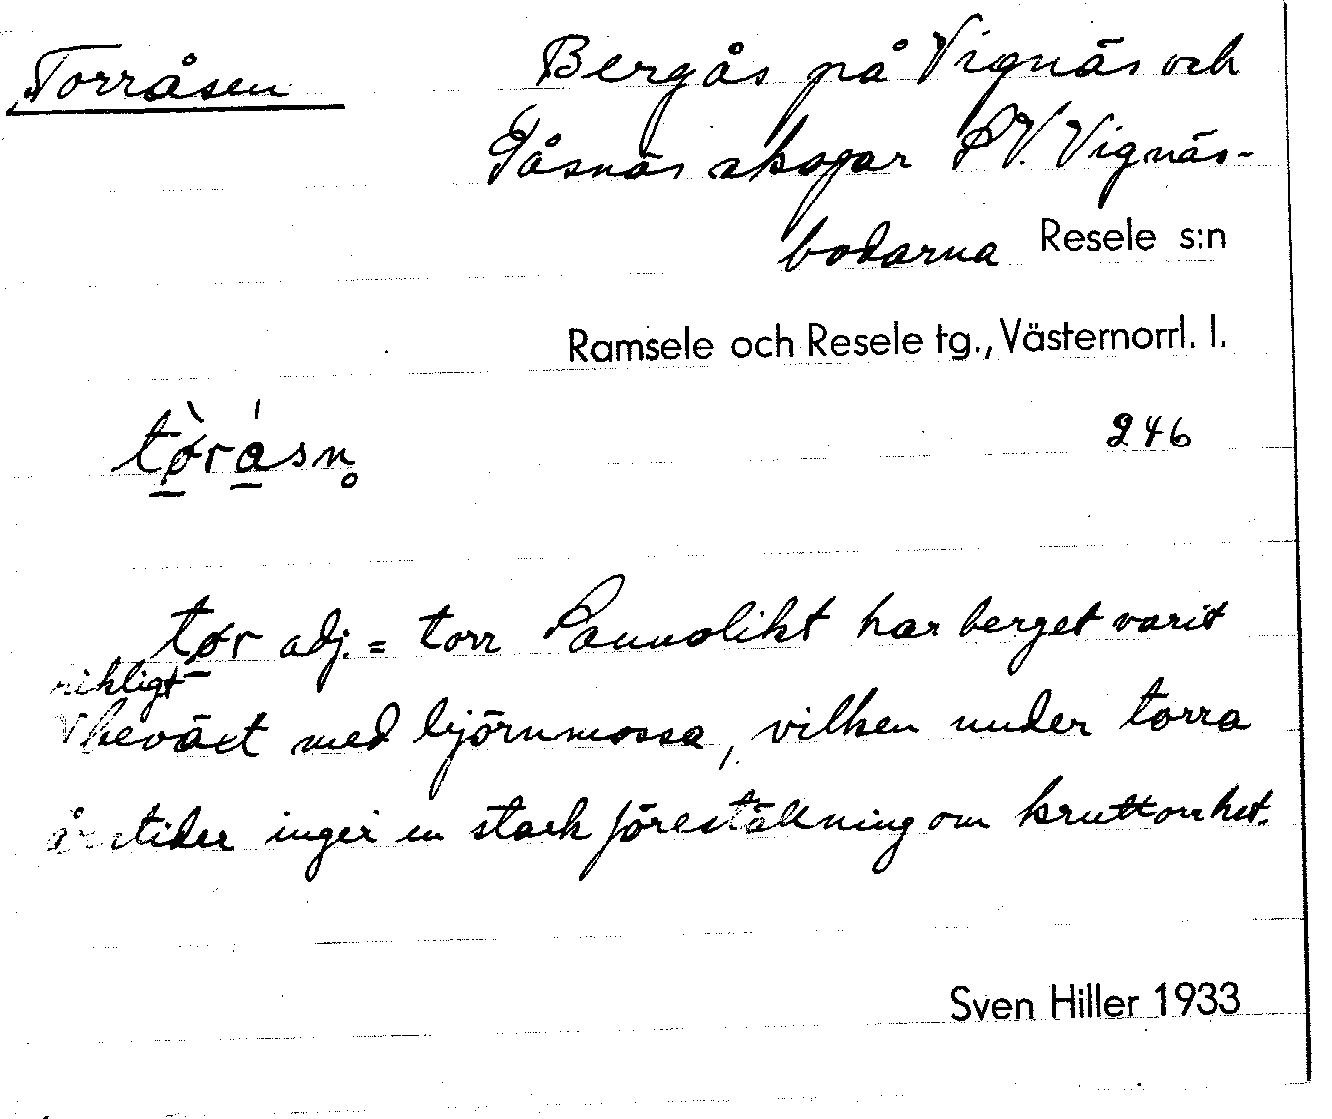 Torråsen
Bergås på Vignäs och
Gåsnäs skogar SV. Vignäs-
bodarna Resele s:n
Ramsele och Resele tg., Västernorrl. l.
tø̀rásn̥
246
tør adj. = torr Sannolikt har berget varit
rikligt
V beväxt med björnmossa, vilken under torra
årstider inger en stark föreställning om kruttorrhet.
Sven Hiller 1933